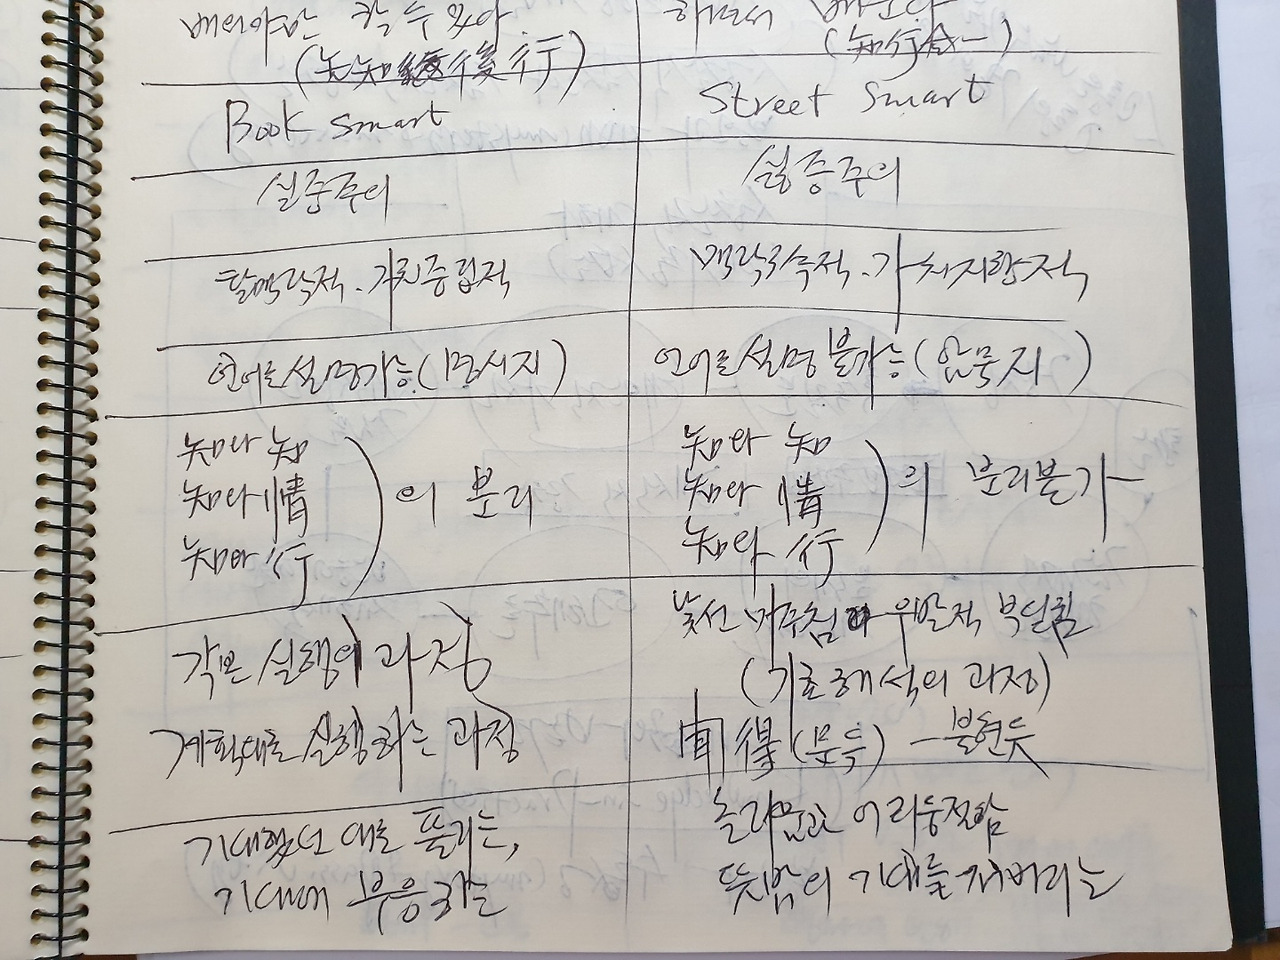 배워야만 할 수 있다
하면서 배운다
(先知後行)
(知行合一)
Book smart
Street smart
실증주의
실증주의
탈맥락적·가치중립적
맥락구속적·가치지향적
언어로 설명가능(명시지)
언어로 설명 불가능(암묵지)
知와 知
知와 情
知와 行
의 분리
知와 知
知와 情
知와 行
의 분리불가
각본 실행의 과정
계획대로 실행하는 과정
낯선 마주침 우발적 부딪침
(기호해석의 과정)
聞得(문득) - 불현듯
기대했던 대로 풀리는,
기대에 부응하는
놀라움과 어리둥절함
뜻밖의 기대를 저버리는